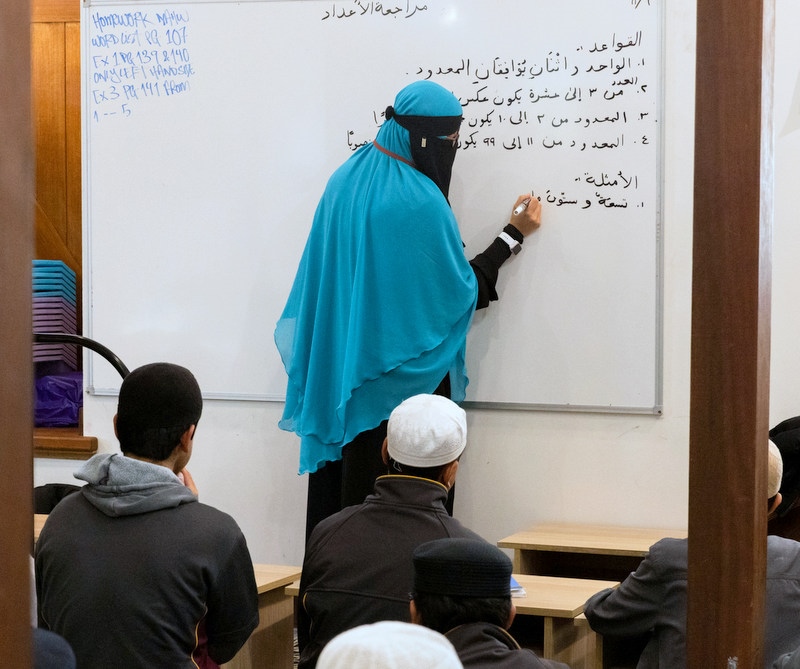 HOMEWORK
WORD LIST PG 107
EX 1 PG 139 & 140
ONLY LEFT HANDSIDE
EX 3 PG 141 FROM
1 -- 5
مراجعة الأعداد
القواعد :-
١. الواحد و اثْنَانِ يُوَافِقَانِ المعدود .
٢. العدد من ٣ إلى عشرة يكون عكس
٣. المعدود من ٣ إلى ١٠ يكون
٤. المعدود من ١١ إلى ٩٩ يكون
الأمثلة :-
١. تسعة و ستون